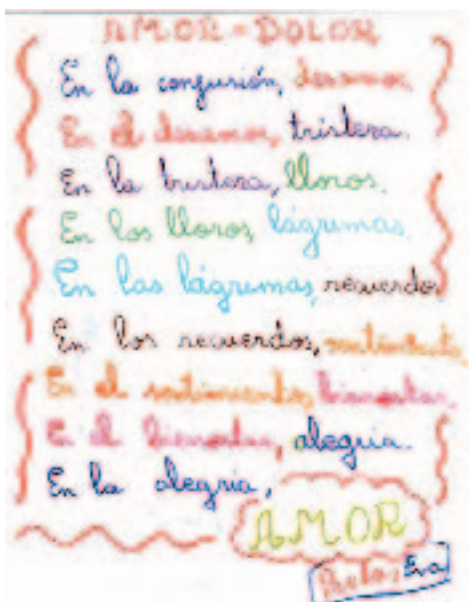 AMOR = DOLOR
En la confusión, desamor.
En el desamor, tristeza.
En la tristeza, lloros.
En los lloros, lágrimas.
En las lágrimas, recuerdos
En los recuerdos, sentimiento,
En el sentimiento, bienestar.
E el bienestar, alegria.
En la alegria,
AMOR
Eva